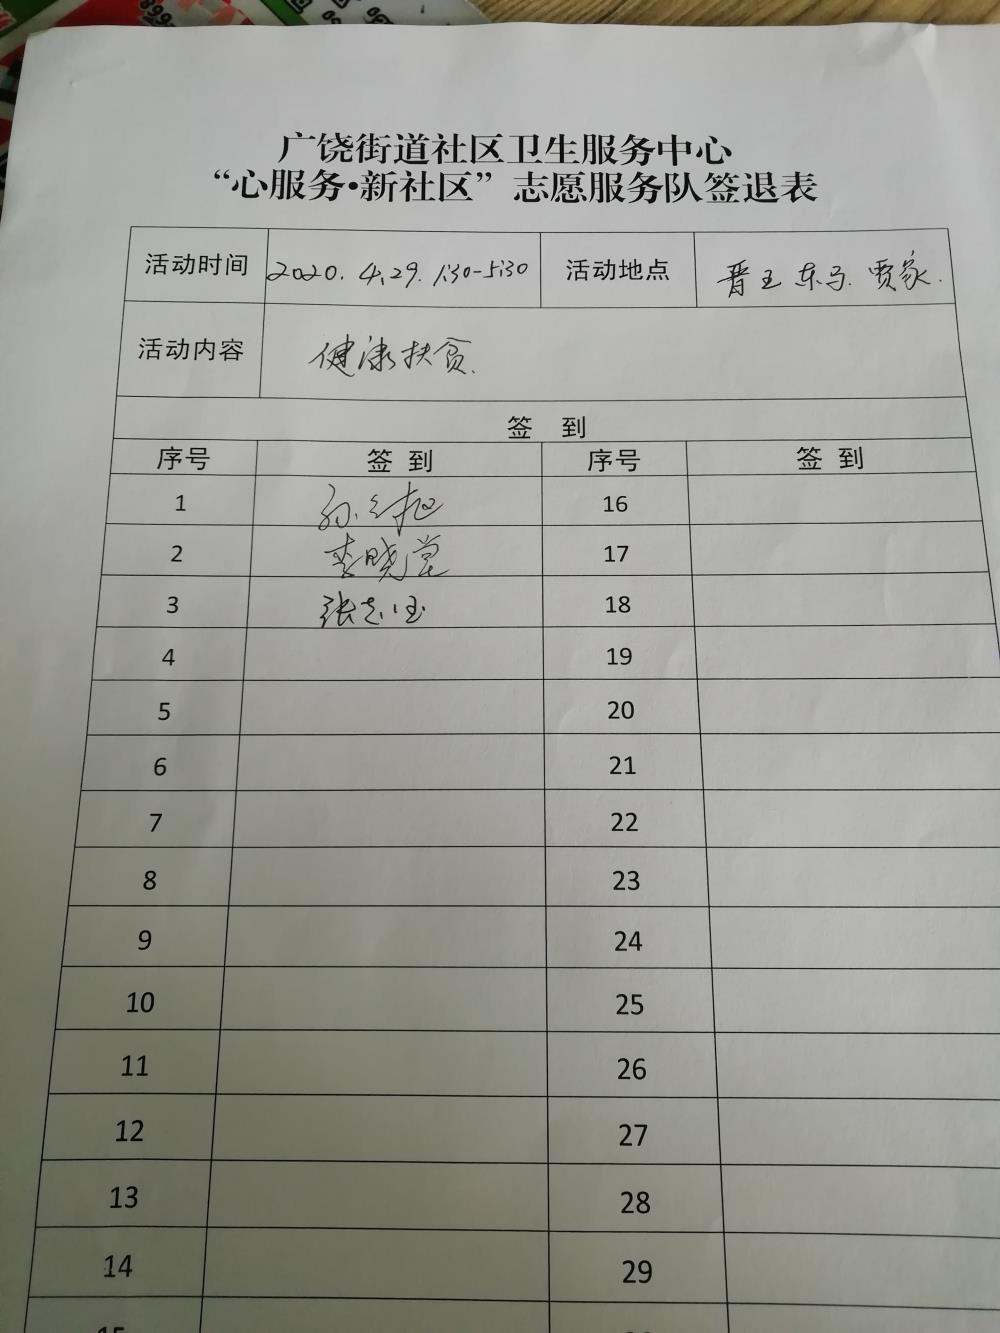 广饶街道社区卫生服务中心
“心服务•新社区”志愿服务队签退表
活动时间 2020.4.29. 1:30-5:30 活动地点 晋王 东马 贾家.
活动内容 健康扶贫.
签 到
序号 签 到 序号 签 到
1 孙 16
2 李晓堂 17
3 张志国 18
4 19
5 20
6 21
7 22
8 23
9 24
10 25
11 26
12 27
13 28
14 29
15